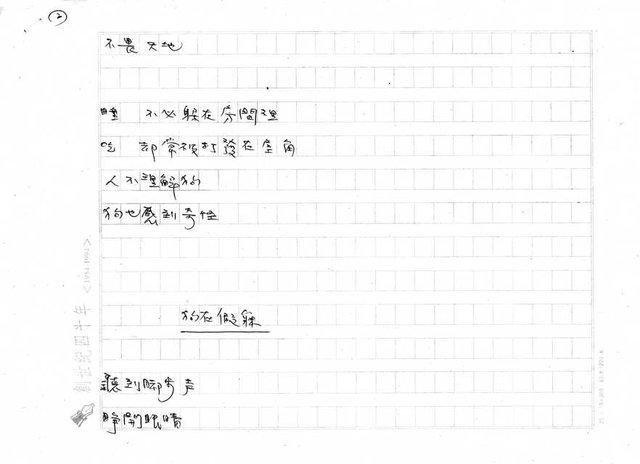 ②
不畏天地
睡 不必躲在房間裡
吃 却常被打發在屋角
人不理解狗
狗也感到奇怪
狗在假寐
聽到脚步声
睜開眼睛
創世紀四十年